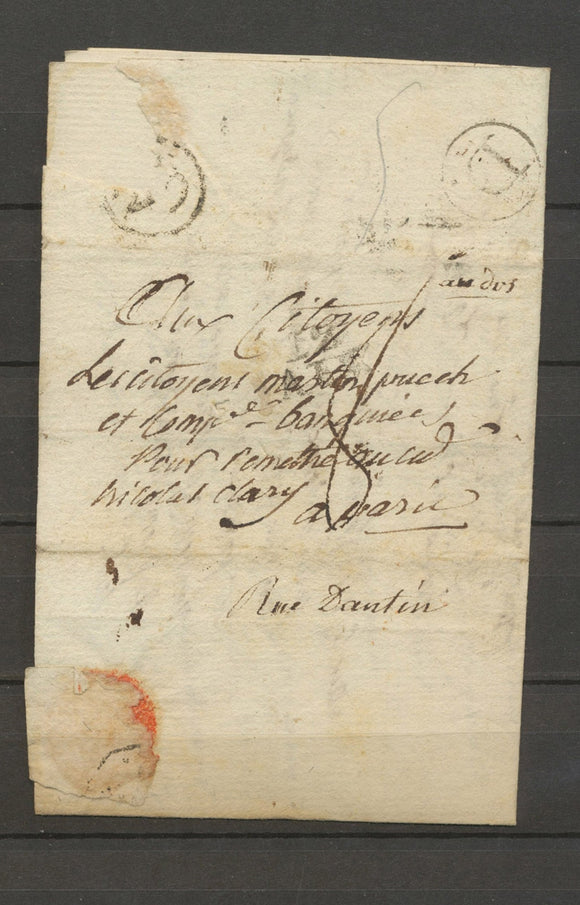 au dos
Aux Citoyens
Les citoyens martin puech
et Comp.e banquiers
Pour remettre au cit
Nicolas Clary
a paris
Rue Dantin